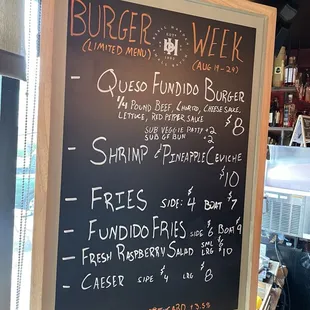 BURGER WEEK
(LIMITED MENU) (AUG 19-24)
- QUESO FUNDIDO BURGER
1/4 POUND BEEF, CHORIZO, CHEESE SAUCE,
LETTUCE, RED PEPPER SAUCE $8
SUB VEGGIE PATTY +2
SUB GF BUN +2
- SHRIMP & PINEAPPLE CEVICHE
$10
- FRIES SIDE: $4 BOAT $7
- FUNDIDO FRIES SIDE $6 BOAT $9
- FRESH RASPBERRY SALAD SML $6
LRG $10
- CAESER SIDE $4 LRG $8